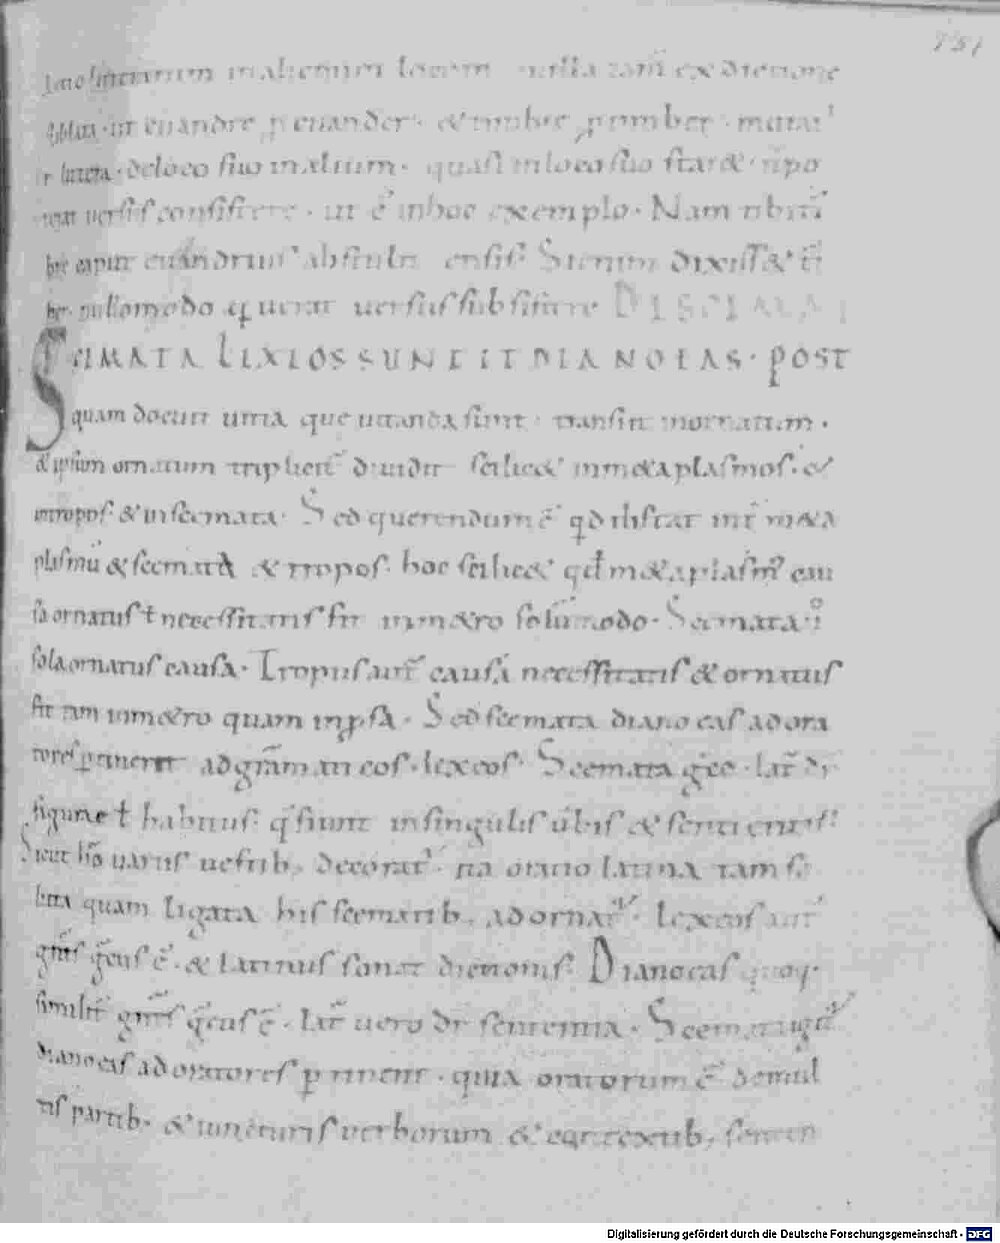 151
in alienum locum nulla tam̄ ex dictione
ut euandre ꝓ euander · & timbre ꝓ timber · mutat᷑
littera · de loco suo in alium · quasi in loco suo star& · n̄ po
terat uersus consistere · ut ē in hoc exemplo · Nam tibi ti
bre caput euandrius abstulit ensis · Si enim dixiss& ti
ber · nullomodo uersus subsistere DE SCEMA
SCEMATA LEXEOS SUNT ET DIANOEAS · POST
quam docuit uitia que uitanda sunt · transit in ornatum ·
& ipsum ornatum dtriplicit᷑ diuidit scilic& in m&aplasmos · &
in tropos · & in scemata · Sed querendum ē qd distat int̄ m&a
plasmū & scemata & tropos · hoc scilic& qd m&aplasm᷒ cau
sa ornatus ł necessitatis fit in m&ro solūmodo · Scemata
sola ornatus causa · Tropus aut̄ causa necessitatis & ornatus
fit tam in m&ro quam in ꝓsa · Sed scemata dianoeas ad ora
tores ꝑtinent ad grāmaticos · lexeos · Scemata gr̄ce · lat̄ dr̄
figurae ł habitus · q̄ fiunt in singulis ūbis & sententiis ·
Sicut hō uariis uestib; decorat᷑ · ita oratio latina tam so
luta quam ligata his scematib; adornat᷑ · lexeos aut̄
gn̄ts gr̄cus ē · & latinus sonat dictionis · Dianoeas quoq·
similit᷑ gn̄ts gr̄cus ē · lat̄ uero dr̄ sententia · Scemata
dianoeas ad oratores ꝑtinent · quia oratorum ē de mul
tis partib; · & iuncturis uerborum & contextib; senten
Digitalisierung gefördert durch die Deutsche Forschungsgemeinschaft - DFG